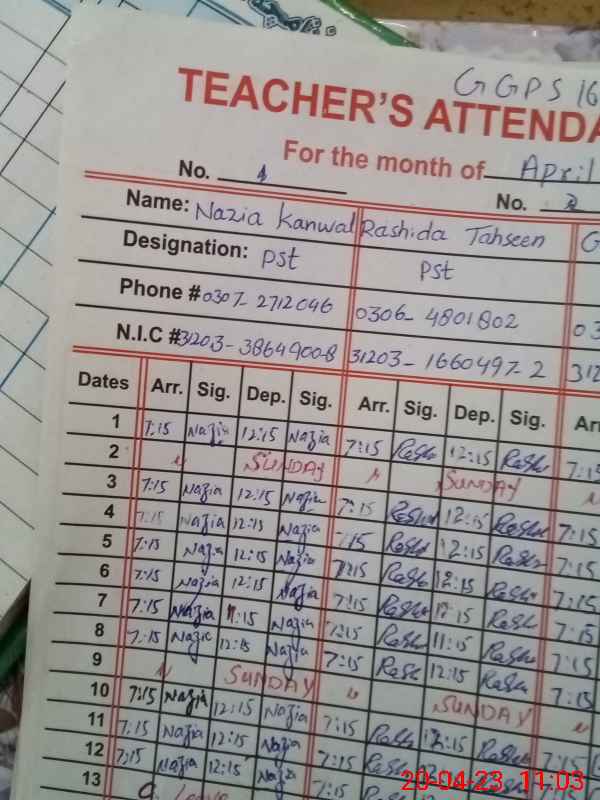 GGPS 16
TEACHER'S ATTENDA
For the month of April
No. 1 No. 2
Name: Nazia Kanwal Rashida Tahseen G
Designation: PST PST
Phone # 0307-2712046 0306-4801802 03
N.I.C # 31203-3864900-8 31203-1660497-2 312
Dates Arr. Sig. Dep. Sig. Arr. Sig. Dep. Sig. Arr
1 7:15 Nazia 12:15 Nazia 7:15 12:15 7:15
2 SUNDAY SUNDAY
3 7:15 Nazia 12:15 Nazia 7:15 12:15 7:15
4 7:15 Nazia 12:15 Nazia 7:15 12:15 7:15
5 7:15 Nazia 12:15 Nazia 7:15 12:15 7:15
6 7:15 Nazia 12:15 Nazia 7:15 11:15 7:15
7 7:15 Nazia 11:15 Nazia 7:15 11:15 7:15
8 7:15 Nazia 12:15 Nazia 7:15 12:15 7:15
9 SUNDAY SUNDAY
10 7:15 Nazia 12:15 Nazia 7:15 12:15 7:15
11 7:15 Nazia 12:15 Nazia 7:15 7:15
12 7:15 Nazia 12:15 Nazia 7:15
13 Leave
20-04-23 11:03